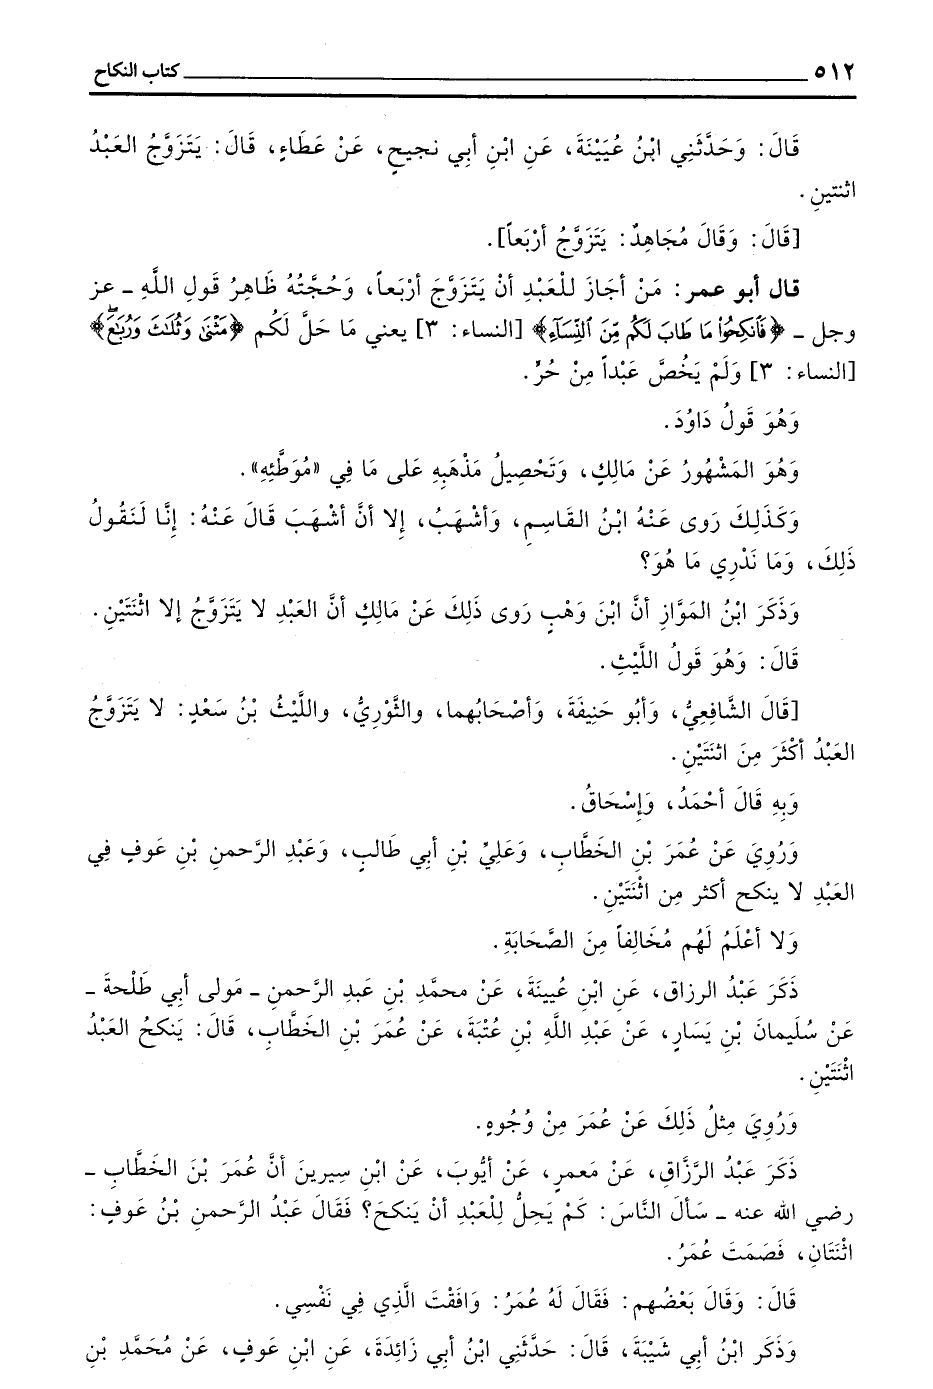 ٥١٢ كتاب النكاح
قَالَ: وَحَدَّثَنِي ابْنُ عُيَيْنَةَ، عَنِ ابْنِ أبي نجيحٍ، عَنْ عَطَاءٍ، قَالَ: يَتَزَوَّجُ العَبْدُ
اثنتينِ.
[قَالَ: وَقَالَ مُجَاهِدٌ: يَتَزَوَّجُ أرْبَعاً].
قال أبو عمر: مَنْ أجَازَ للْعَبْدِ أنْ يَتَزَوَّجَ أرْبَعاً، وَحُجَّتُهُ ظَاهِرُ قَولِ اللَّهِ ـ عز
وجل ـ ﴿فَانكِحُوا مَا طَابَ لَكُم مِّنَ النِّسَاءِ﴾ [النساء: ٣] يعني مَا حَلَّ لَكُم ﴿مَثْنَى وَثُلَاثَ وَرُبَاعَ﴾
[النساء: ٣] وَلَمْ يَخُصَّ عَبْداً مِنْ حُرٍّ.
وَهُوَ قَولُ دَاوُدَ.
وَهُوَ المَشْهُورُ عَنْ مَالِكٍ، وَتَحْصِيلُ مَذْهَبِهِ عَلى مَا فِي «مُوَطَّئِهِ».
وَكَذَلِكَ رَوى عَنْهُ ابْنُ القَاسِمِ، وَأشْهَبُ، إلا أنَّ أشْهَبَ قَالَ عَنْهُ: إنَّا لَنَقُولُ
ذَلِكَ، وَمَا نَدْرِي مَا هُوَ؟
وَذَكَرَ ابْنُ المَوَّازِ أنَّ ابْنَ وَهْبٍ رَوى ذَلِكَ عَنْ مَالِكٍ أنَّ العَبْدِ لا يَتَزَوَّجُ إلا اثْنَتَيْنِ.
قَالَ: وَهُوَ قَولُ اللَّيْثِ.
[قَالَ الشَّافِعِيُّ، وَأبُو حَنِيفَةَ، وَأصْحَابُهما، والثَّوْرِيُّ، واللَّيْثُ بْنُ سَعْدٍ: لا يَتَزَوَّجُ
العَبْدُ أكْثَرَ مِنَ اثنَتَيْنِ.
وَبِهِ قَالَ أحْمَدُ، وَإسْحَاقُ.
وَرُوِيَ عَنْ عُمَرَ بْنِ الخَطَّابِ، وَعَلِيِّ بْنِ أبي طَالبٍ، وَعَبْدِ الرَّحمنِ بْنِ عَوفٍ فِي
العَبْدِ لا ينكح أكثر مِن اثْنَتَيْنِ.
وَلا أعْلَمُ لَهُم مُخَالِفاً مِنَ الصَّحَابَةِ.
ذَكَرَ عَبْدُ الرزاق، عَنِ ابْنِ عُيينَةَ، عَنْ محمَّدِ بْنِ عَبدِ الرَّحمنِ ـ مَولى أبي طَلْحةَ ـ
عَنْ سُلَيمانَ بْنِ يَسَارٍ، عَنْ عَبْدِ اللَّهِ بْنِ عُتْبَةَ، عَنْ عُمَرَ بْنِ الخَطَّابِ، قَالَ: يَنكحُ العَبْدُ
اثْنَتَيْنِ.
وَرُوِيَ مِثلُ ذَلِكَ عَنْ عُمَرَ مِنْ وُجُوهٍ.
ذَكَرَ عَبْدُ الرَّزَّاقِ، عَنْ مَعمرٍ، عَنْ أيُّوبَ، عَنْ ابْنِ سِيرينَ أنَّ عُمَرَ بْنَ الخَطَّابِ ـ
رضي الله عنه ـ سَألَ النَّاسَ: كَمْ يَحِلُّ لِلْعَبْدِ أنْ يَنكحَ؟ فَقَالَ عَبْدُ الرَّحمنِ بْنُ عَوفٍ:
اثْنَتَانِ، فَصَمَتَ عُمَرُ.
قَالَ: وَقَالَ بَعْضُهم: فَقَالَ لَهُ عُمَرُ: وَافَقْتَ الَّذِي فِي نَفْسِي.
وَذَكَر ابْنُ أبي شَيْبَةَ، قَالَ: حَدَّثَنِي ابْنُ أبي زَائِدَةَ، عَنِ ابْنِ عَوفٍ، عَنْ مُحَمَّدِ بْنِ